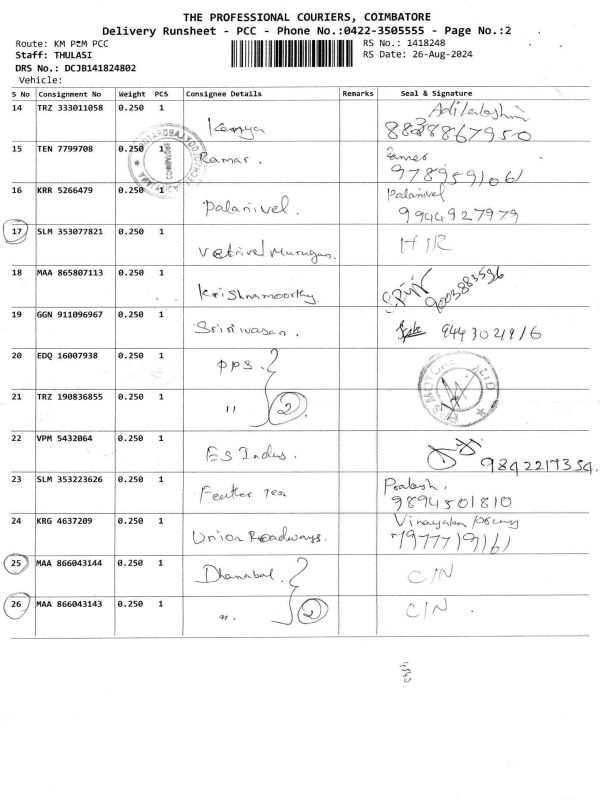 THE PROFESSIONAL COURIERS, COIMBATORE
Delivery Runsheet - PCC - Phone No.:0422-3505555 - Page No.:2
Route: KM P=M PCC
RS No.: 1418248
Staff: THULASI
RS Date: 26-Aug-2024
DRS No.: DCJB141824802
Vehicle:
S No Consignment No Weight PCS Consignee Details Remarks Seal & Signature
14 TRZ 333011058 0.250 1 Kaniya
8838867950
15 TEN 7799708 0.250 1 Ramar.
9789591061
16 KRR 5266479 0.250 1 Palanivel. Palanivel
9944927979
17 SLM 353077821 0.250 1 Vetrivel Murugan. H/R
18 MAA 865807113 0.250 1 Krishnamoorthy 9003883536
19 GGN 911096967 0.250 1 Srinivasan. 9443021916
20 EDQ 16007938 0.250 1 PPS.
21 TRZ 190836855 0.250 1 " 2
22 VPM 5432064 0.250 1 ES Indus. 9842217354.
23 SLM 353223626 0.250 1 Feather Prakash.
9894501810
24 KRG 4637209 0.250 1 Union Roadways. Vinayaka
7977719161
25 MAA 866043144 0.250 1 Dhanabal. C/N
26 MAA 866043143 0.250 1 " 2 C/N.